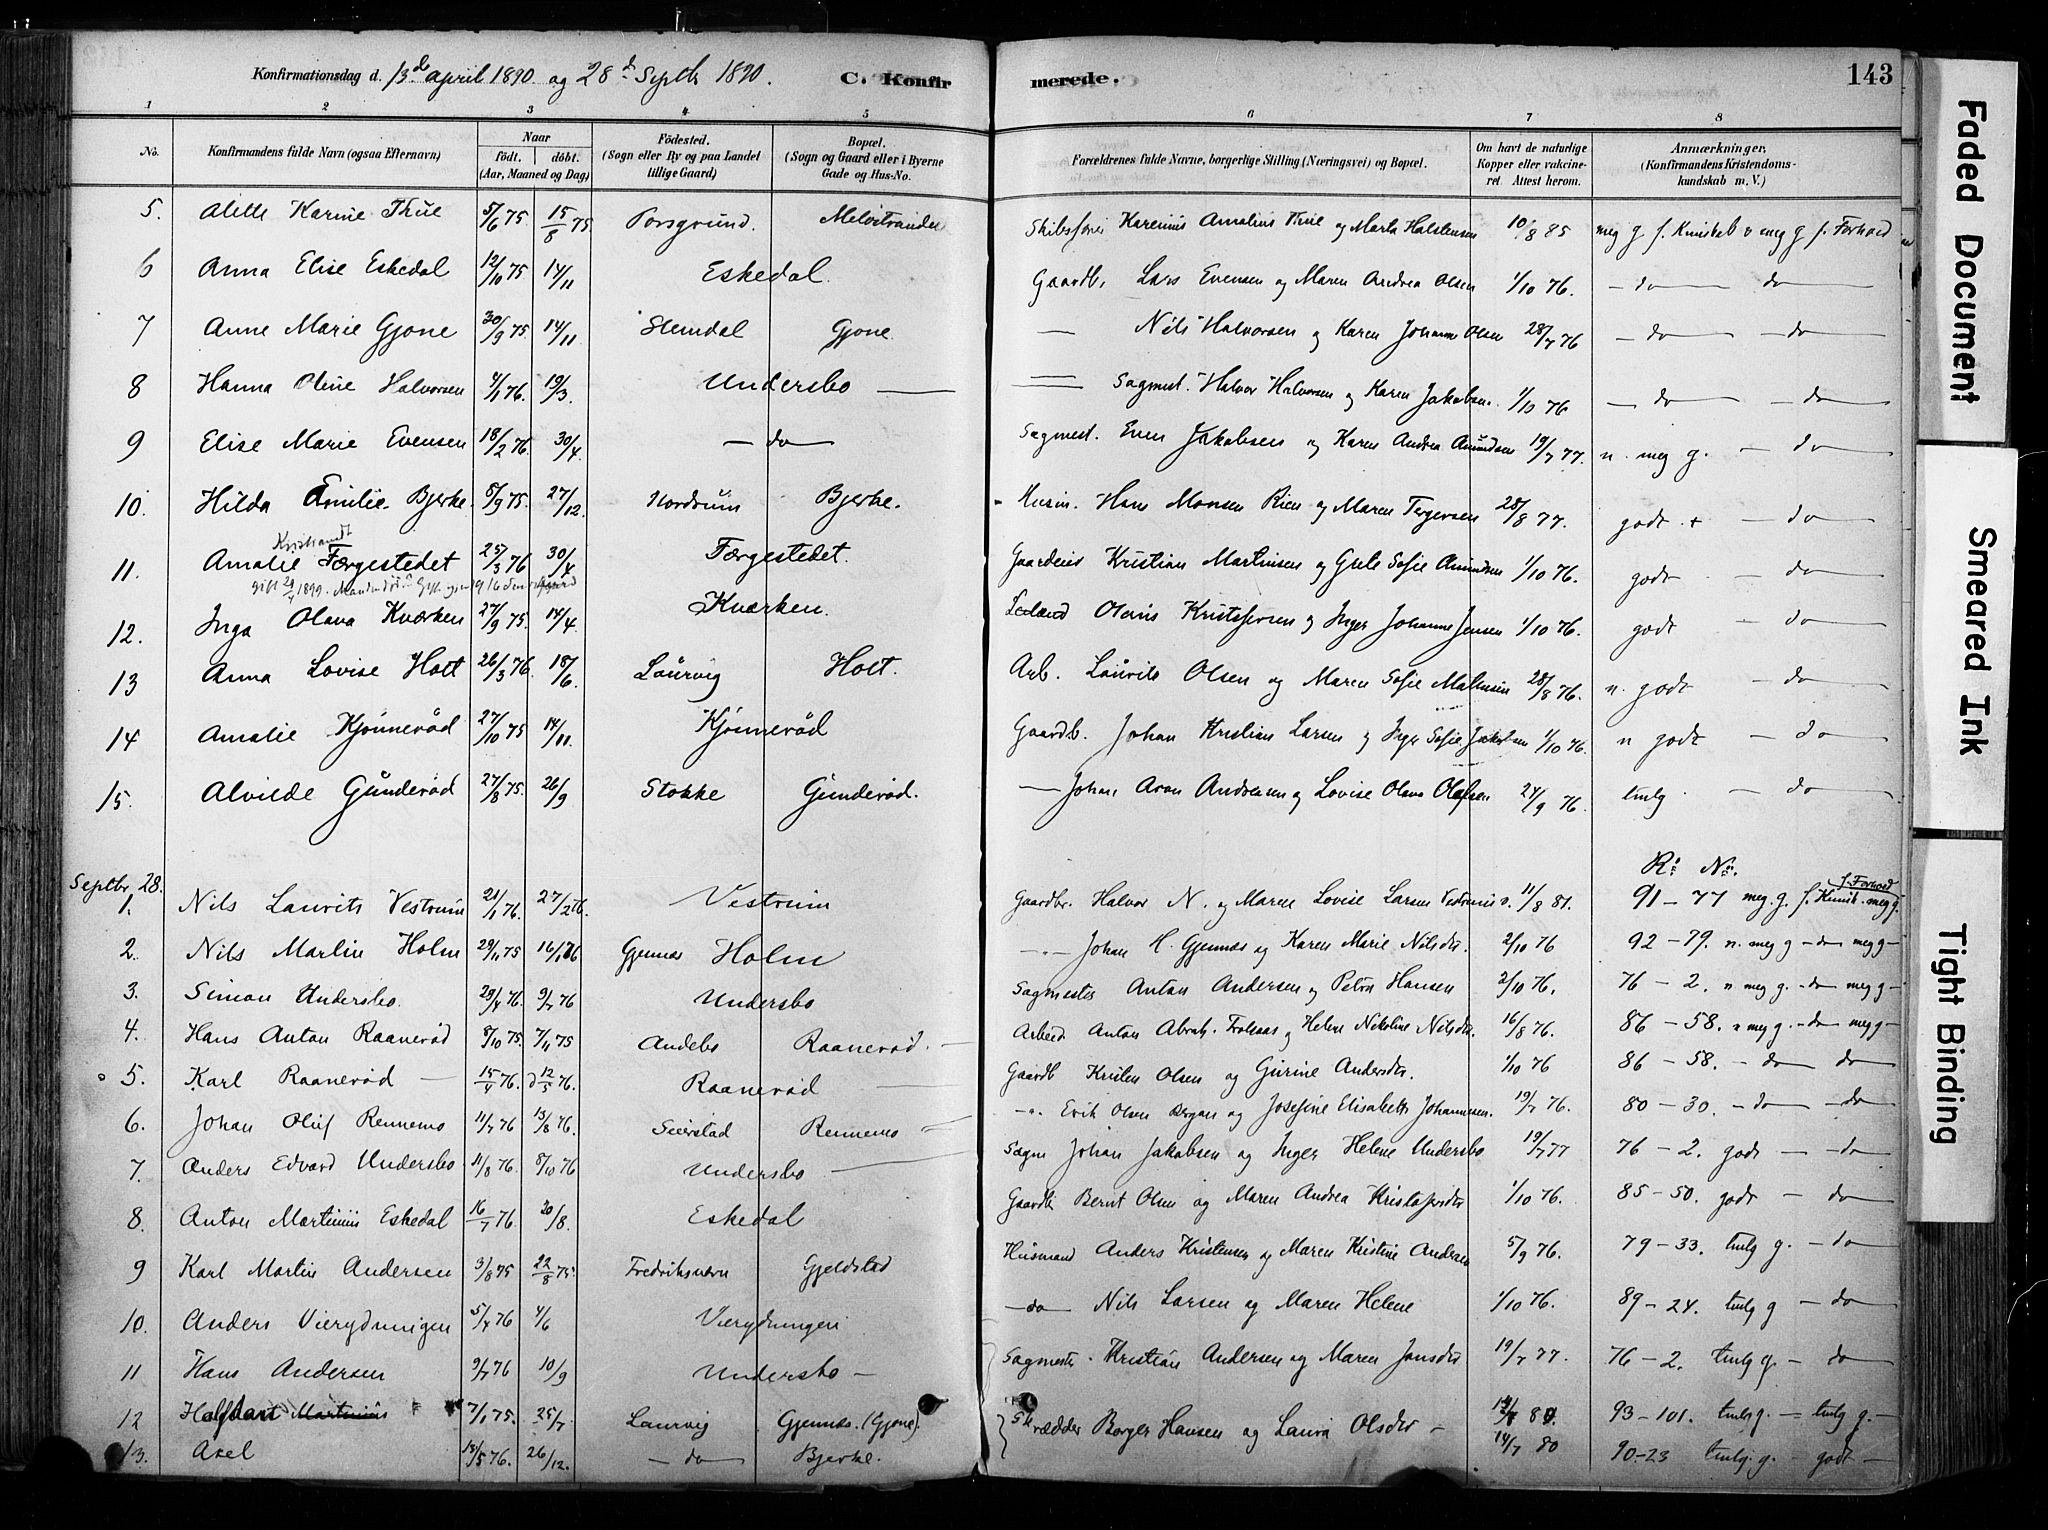 Konfirmationsdag d. 13de april 1890 og 28d Septbr 1890. C. Konfirmerede. 143
1 2 3 4 5 6 7 8
No. Konfirmandens fulde Navn (ogsaa Efternavn) Naar födt. döbt. (Aar, Maaned og Dag) Födested. (Sogn eller By og paa Landet tillige Gaard) Bopæl. (Sogn og Gaard eller i Byerne Gade og Hus-No. Forældrenes fulde Navne, borgerlige Stilling (Næringsvei) og Bopæl. Om havt de naturlige Kopper eller vakcineret. Attest herom. Anmærkninger, (Konfirmandens Kristendomskundskab m. V.)
5. Karine Thue 5/6 75 15/8 75 Porsgrund. Karenius Amalius Thue og Marta Halstensen 10/8 85 meg g f. Kundskab o meg g f. Forhold
6 Anna Elise Eskedal 12/10 75 14/11 Eskedal. Gaardb. Lars Evensen og Maren Andrea Olsen 1/10 76. – do – do –
7 Anne Marie Gjone 30/9 75 14/11 Slemdal Gjone. — Nils Halvorsen og Karen Johanne Olsen 28/7 76 – do – do –
8 Hanna Oline Halvorsen 4/1 76. 19/3. Undersbo — Sagmest. Halvor Halvorsen og Karen Jakobsen. 1/10 76 – do – do –
9 Elise Marie Evensen 18/2 76. 30/4. – do – Sagmest. Even Jakobsen og Karen Andrea Amundsen 19/7 77. n. meg g. – do –
10. Hilda Emilie Bjerke. 5/9 75. 27/12. Nordrum Bjerke. Husm. Hans Monsen Rien og Maren Tergersen 28/8 77. godt + – do –
11. Amalie Færgestedet 25/3 76 30/4 Færgestedet. Gaardeier Kristian Martinsen og Grete Sofie Amundsen 1/10 76. godt – do –
gift 29/4 1899.
12. Inga Olava Kværken 27/9 75. 14/4. Kværken. Olavus Kristofersen og Inger Johanne Jensen 1/10 76. godt – do –
13 Anna Lovise Holt 26/3 76. 18/6. Laurvig Holt. Arb. Laurits Olsen og Maren Sofie 28/8 76. n. godt – do –
14 Amalie Kjönneröd 27/10 75 14/11. Kjönneröd Gaardb. Johan Kristian Larsen og Inger Sofie Jakobsen 1/10 76. n godt – do –
15. Alvilde Gunderöd 27/8 75. 26/9 Stokke Gunderöd. — Johan Aron Andersen og Lovise Olava Olafsen 27/9 76. tmlg. – do –
R: No.
Septbr. 28.
1. Nils Laurits Vestrum 21/1 76. 27/2 76. Vestrum Gaardbr. Halvor N. og Maren Lovise Larsen Vestrum v. 11/8 81. 91 – 77 meg. g. f. Kundsk. meg g. f. Forhold
2. Nils Martin Holm 29/11 75 16/1 76 Gjennæs Holm Johan H. Gjennæs og Karen Marie Nilsdr. 2/10 76 92 – 79. n. meg g – do meg g –
3. Simon Undersbo. 29/4 76. 9/7 76 Undersbo Sagmester Anton Andersen og Petra Hansen 2/10 76. 76 – 2. n meg g. – do meg g –
4. Hans Anton Raaneröd 8/10 75. 7/11 75 Andebo Raaneröd. – Arbeid Anton Abrah. og Helene Nikoline Nilsdr. 16/8 76. 86 – 58. n meg g. – do meg g –
5. Karl Raaneröd — 15/4 76. 12/5 76. Raaneröd Gaardb Kristen Olsen og Gurine Andersdr. 1/10 76 86 – 58. – do do
6. Johan Oluf Rennemo 11/7 76 13/8 76. Seierstad Rennemo Erik Olsen Bergan og Josefine Elisabeth Johannesen. 19/7 76. 80 – 30. – do – – do
7. Anders Edvard Undersbo 11/8 76. 8/10 76 Undersbo — Sagm Johan Jakobsen og Inger Helene Undersbo 19/7 77 76 – 2. godt – – do
8. Anton Martinius Eskedal 16/7 76 20/8. Eskedal Gaardb Bernt Olsen og Maren Andrea Kristofersdr 1/10 76. 85 – 50. godt – do
9 Karl Martin Andersen 3/8 75 22/8 75. Fredriksværn Gjeldstad Husmand Anders Kristensen og Maren Kristine Andersen 5/9 76. 79 – 33. tmlg g. – do
10. Anders Vierydningen 5/4 76 4/6 Vierydningen – do – Nils Larsen og Maren Helene 1/10 76. 89 – 24. tmlg g – do
11 Hans Andersen 9/7 76 10/9 Undersbo – Sagmester Kristian Andersen og Maren Jonsdr 19/7 77. 76 – 2. tmlg g. – do
12 Halfdan Martinius 7/1 75. 25/7. Laurvig Gjennæs. (Gjone). Skrædder Borger Hansen og Laura Olsdr – 14/7 80. 93 – 101. tmlg g. – tmlg g. –
13. Axel 13/5 76. 26/12. – do Bjerke. 14/7 80 90 – 23 tmlg. g. – godt –
Faded Document
Smeared Ink
Tight Binding